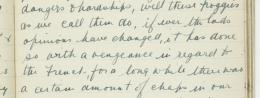 dangers & hardships, well these froggies
as we call them do, if ever the lads
opinions have changed, it has done
so with a vengeance in regard to
the French. for a long while there was
a certain amount of chaps in our